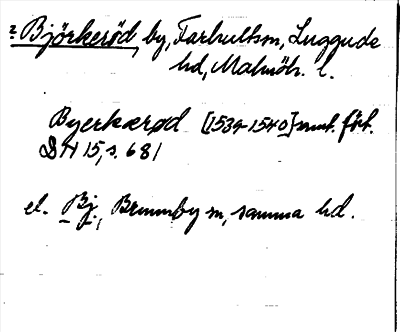 2 Björkeröd, by, Farhultsn, Luggude
hd, Malmöh. l.
Byerkærød [1534-1540] fort.
DN 15, s. 681
el. Bj., Brunnby sn, samma hd.